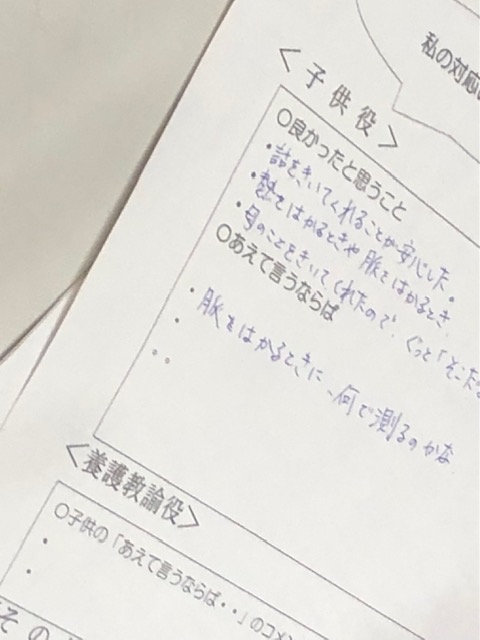 私の対応
＜子供役＞
〇良かったと思うこと
・話をきいてくれることが安心した。
・熱をはかるときや脈をはかるとき、
・身のことをきいてくれたので、ぐっと「そこだ
〇あえて言うならば
・脈をはかるときに、何で測るのかな
・
＜養護教諭役＞
〇子供の「あえて言うならば・・」のコメ
・
・
その